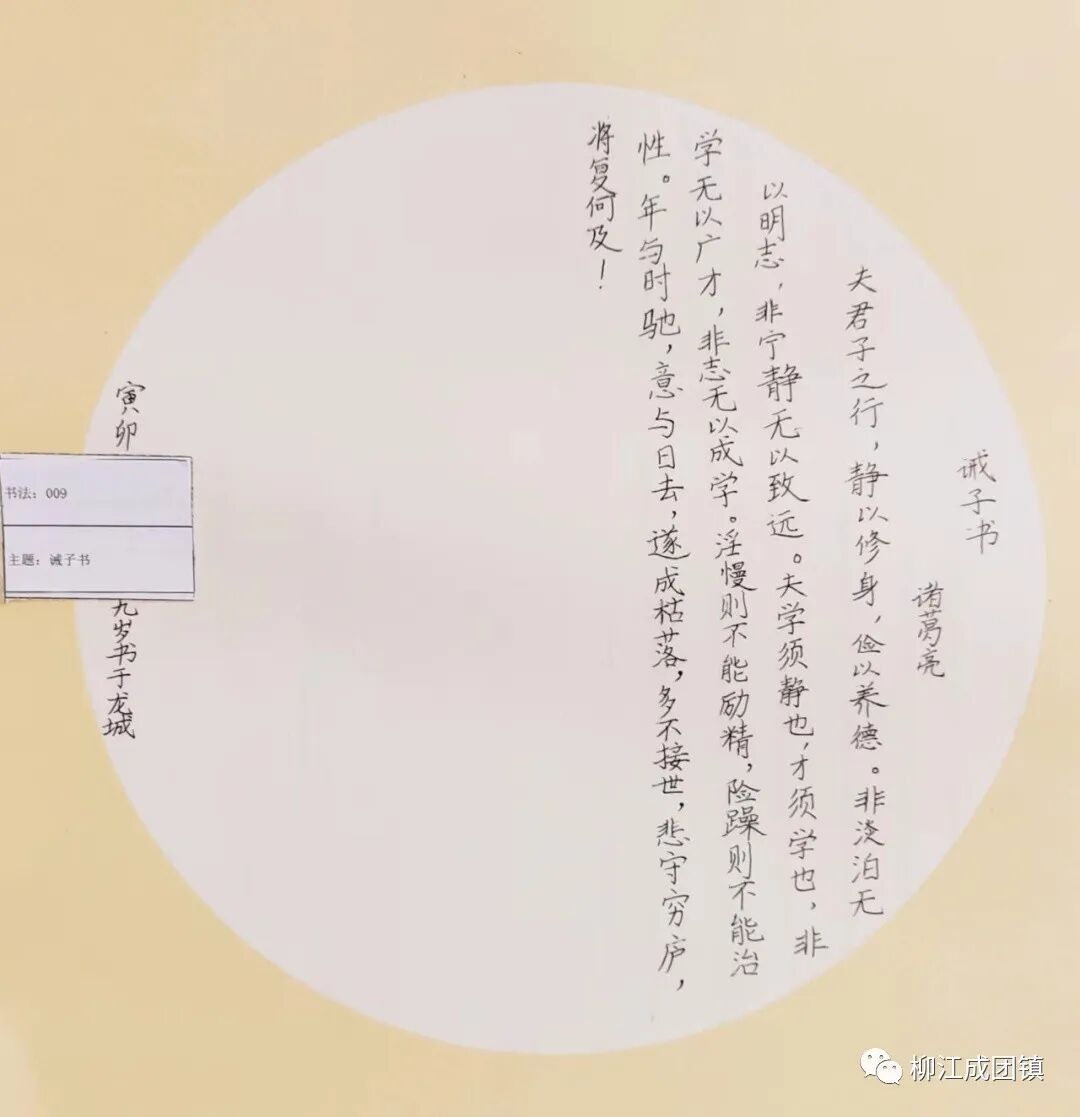 诫子书
诸葛亮
夫君子之行，静以修身，俭以养德。非淡泊无
以明志，非宁静无以致远。夫学须静也，才须学也，非
学无以广才，非志无以成学。淫慢则不能励精，险躁则不能治
性。年与时驰，意与日去，遂成枯落，多不接世，悲守穷庐，
将复何及！
寅卯
九岁书于龙城
书法：009
主题：诫子书
柳江成团镇